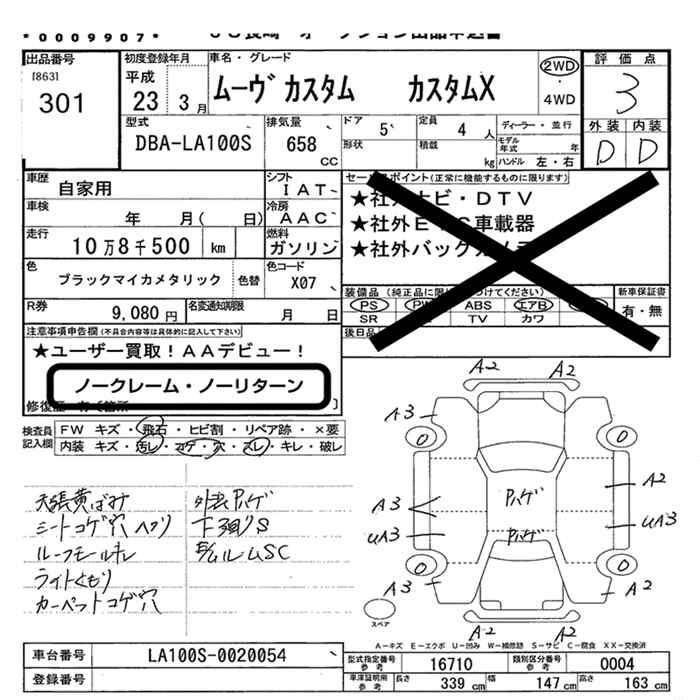 *0009907*
出品番号 初度登録年月 車名・グレード 2WD 評価点
[863] 平成
301 23 3月 ムーヴカスタム カスタムX ・ 4WD 3
型式 排気量 ドア 5 定員 4人 ディーラー・並行 外装 内装
DBA-LA100S 658 cc 形状 積載 kg モデル年式 年 D D
ハンドル 左・右
車歴 自家用 シフト IAT セールスポイント(正常に機能するものに限ります)
車検 年 月( 日) 冷房 AAC ★社外ナビ・DTV
★社外ETC車載器
走行 10万8千500 km 燃料 ガソリン ★社外バックカメラ
色 ブラックマイカメタリック 色替 色コード X07
装備品(純正品に限り つけてください) 新車保証書
R券 9,080円 名変通知期限 月 日 PS PW ABS エアB 有・無
SR TV カワ
注意事項申告欄(不具合内容等は具体的に記入して下さい) 後日品
★ユーザー買取!AAデビュー!
ノークレーム・ノーリターン
修復歴 有(箇所 )
検査員記入欄 FW キズ・飛石・ヒビ割・リペア跡・×要
内装 キズ・汚レ・コゲ・穴・スレ・キレ・破レ
天張黄ばみ 外装ハゲ
シートコゲ穴ヘタリ 下廻りS
ルーフモール
ライトくもり
カーペットコゲ穴
A2 A2
A3
0 0
Pハゲ A2
A3
UA3 Pハゲ UA3
0 0
A3 A2
スペア A2 A2
A-キズ E-エクボ U-凹み W-補修跡 S-サビ C-腐食 XX-交換済
車台番号 LA100S-0020054 型式指定番号参考 16710 類別区分番号参考 0004
登録番号 車庫証明用参考 長さ 339 cm 幅 147 cm 高さ 163 cm